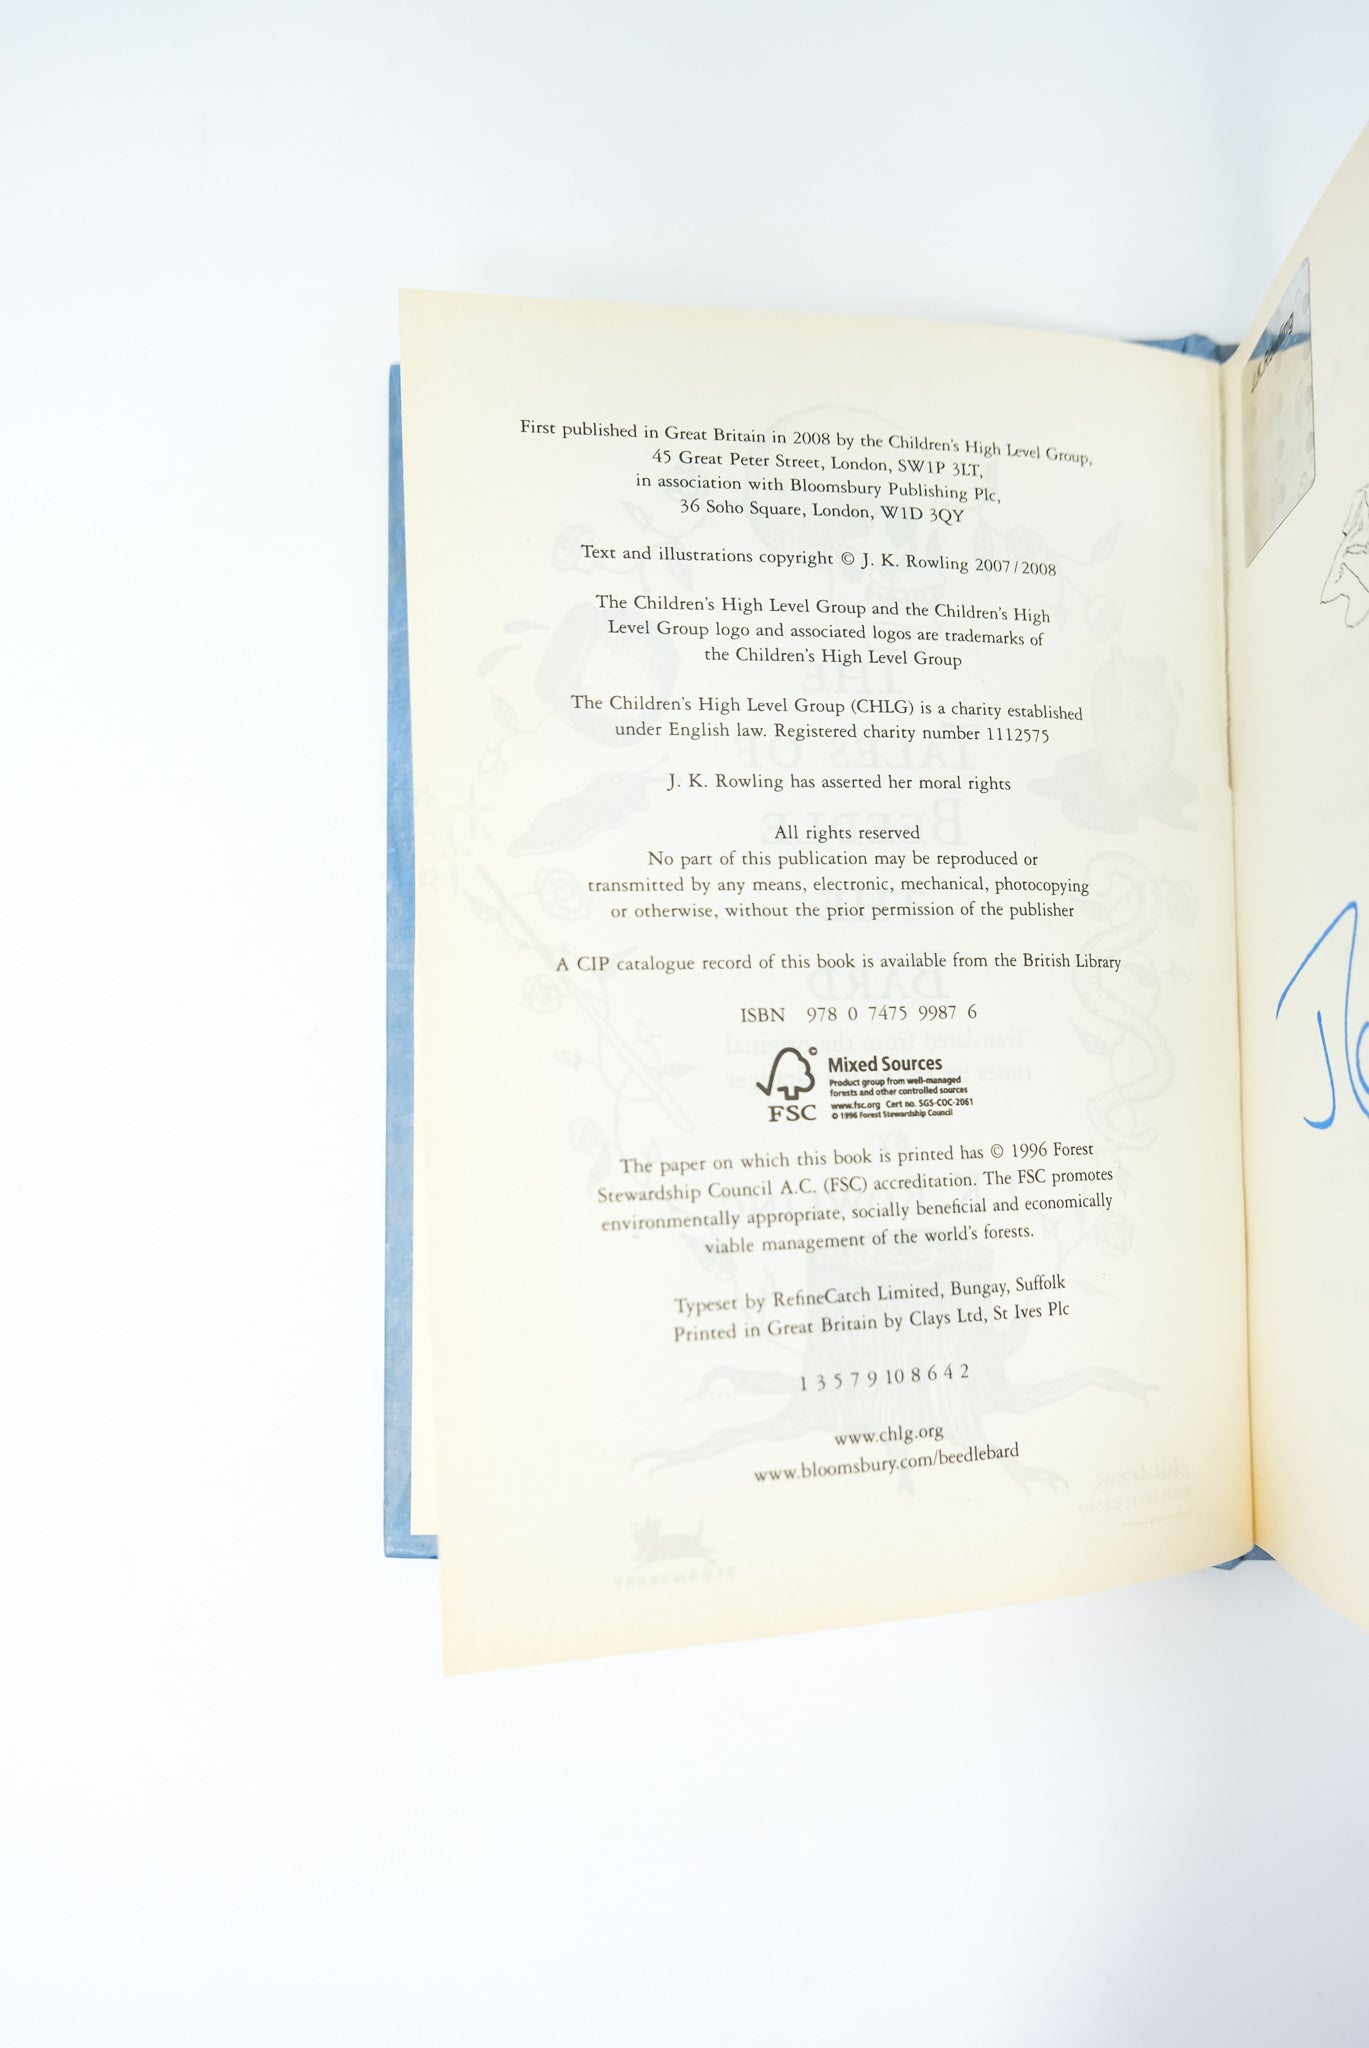 First published in Great Britain in 2008 by the Children's High Level Group,
45 Great Peter Street, London, SW1P 3LT,
in association with Bloomsbury Publishing Plc,
36 Soho Square, London, W1D 3QY
Text and illustrations copyright © J. K. Rowling 2007/2008
The Children's High Level Group and the Children's High
Level Group logo and associated logos are trademarks of
the Children's High Level Group
The Children's High Level Group (CHLG) is a charity established
under English law. Registered charity number 1112575
J. K. Rowling has asserted her moral rights
All rights reserved
No part of this publication may be reproduced or
transmitted by any means, electronic, mechanical, photocopying
or otherwise, without the prior permission of the publisher
A CIP catalogue record of this book is available from the British Library
ISBN 978 0 7475 9987 6
Mixed Sources
Product group from well-managed
forests and other controlled sources
www.fsc.org Cert no. SGS-COC-2061
© 1996 Forest Stewardship Council
FSC
The paper on which this book is printed has © 1996 Forest
Stewardship Council A.C. (FSC) accreditation. The FSC promotes
environmentally appropriate, socially beneficial and economically
viable management of the world's forests.
Typeset by RefineCatch Limited, Bungay, Suffolk
Printed in Great Britain by Clays Ltd, St Ives Plc
1 3 5 7 9 10 8 6 4 2
www.chlg.org
www.bloomsbury.com/beedlebard